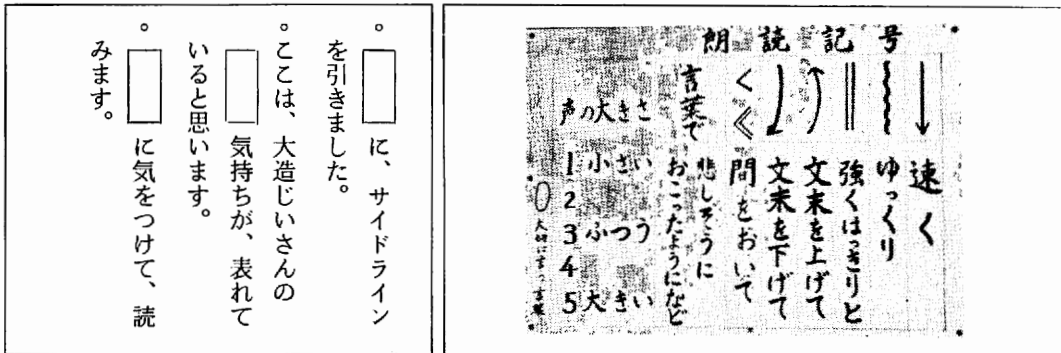 朗読記号
速く
ゆっくり
強くはっきりと
文末を上げて
文末を下げて
間をおいて
言葉で
悲しそうに
おこったようになど
声の大きさ
1 小さい
2
3 ふつう
4
5 大きい
大切に言う言葉
。□に、サイドライン
を引きました。
。ここは、大造じいさんの
□気持ちが、表れて
いると思います。
。□に気をつけて、読
みます。